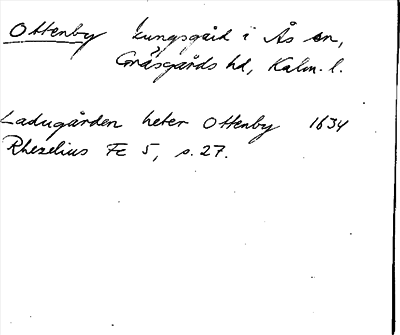 Ottenby kungsgård i Ås sn,
Gräsgårds hd, Kalm. l.
Ladugården heter Ottenby 1634
Rhezelius Fc 5, s. 27.